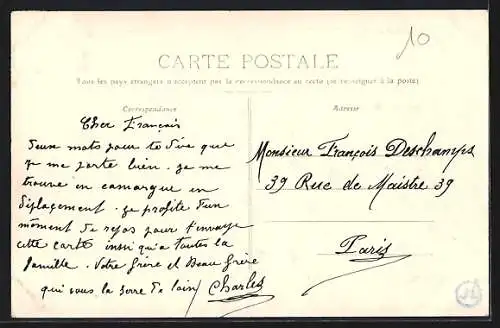 10
CARTE POSTALE
Tous les pays étrangers n'acceptent pas la correspondance au recto (se renseigner à la poste)
Correspondance
Adresse
Cher François
Deux mots pour te dire que
je me porte bien. je me
trouve en camargue en
déplacement. je profite d'un
moment de repos pour t'envoyer
cette carte insi qu'a toutes la
famille. Votre frère et Beau frère
qui vous la serre de loin / Charles
Monsieur François Deschamps
39 Rue de Maistre 39
Paris